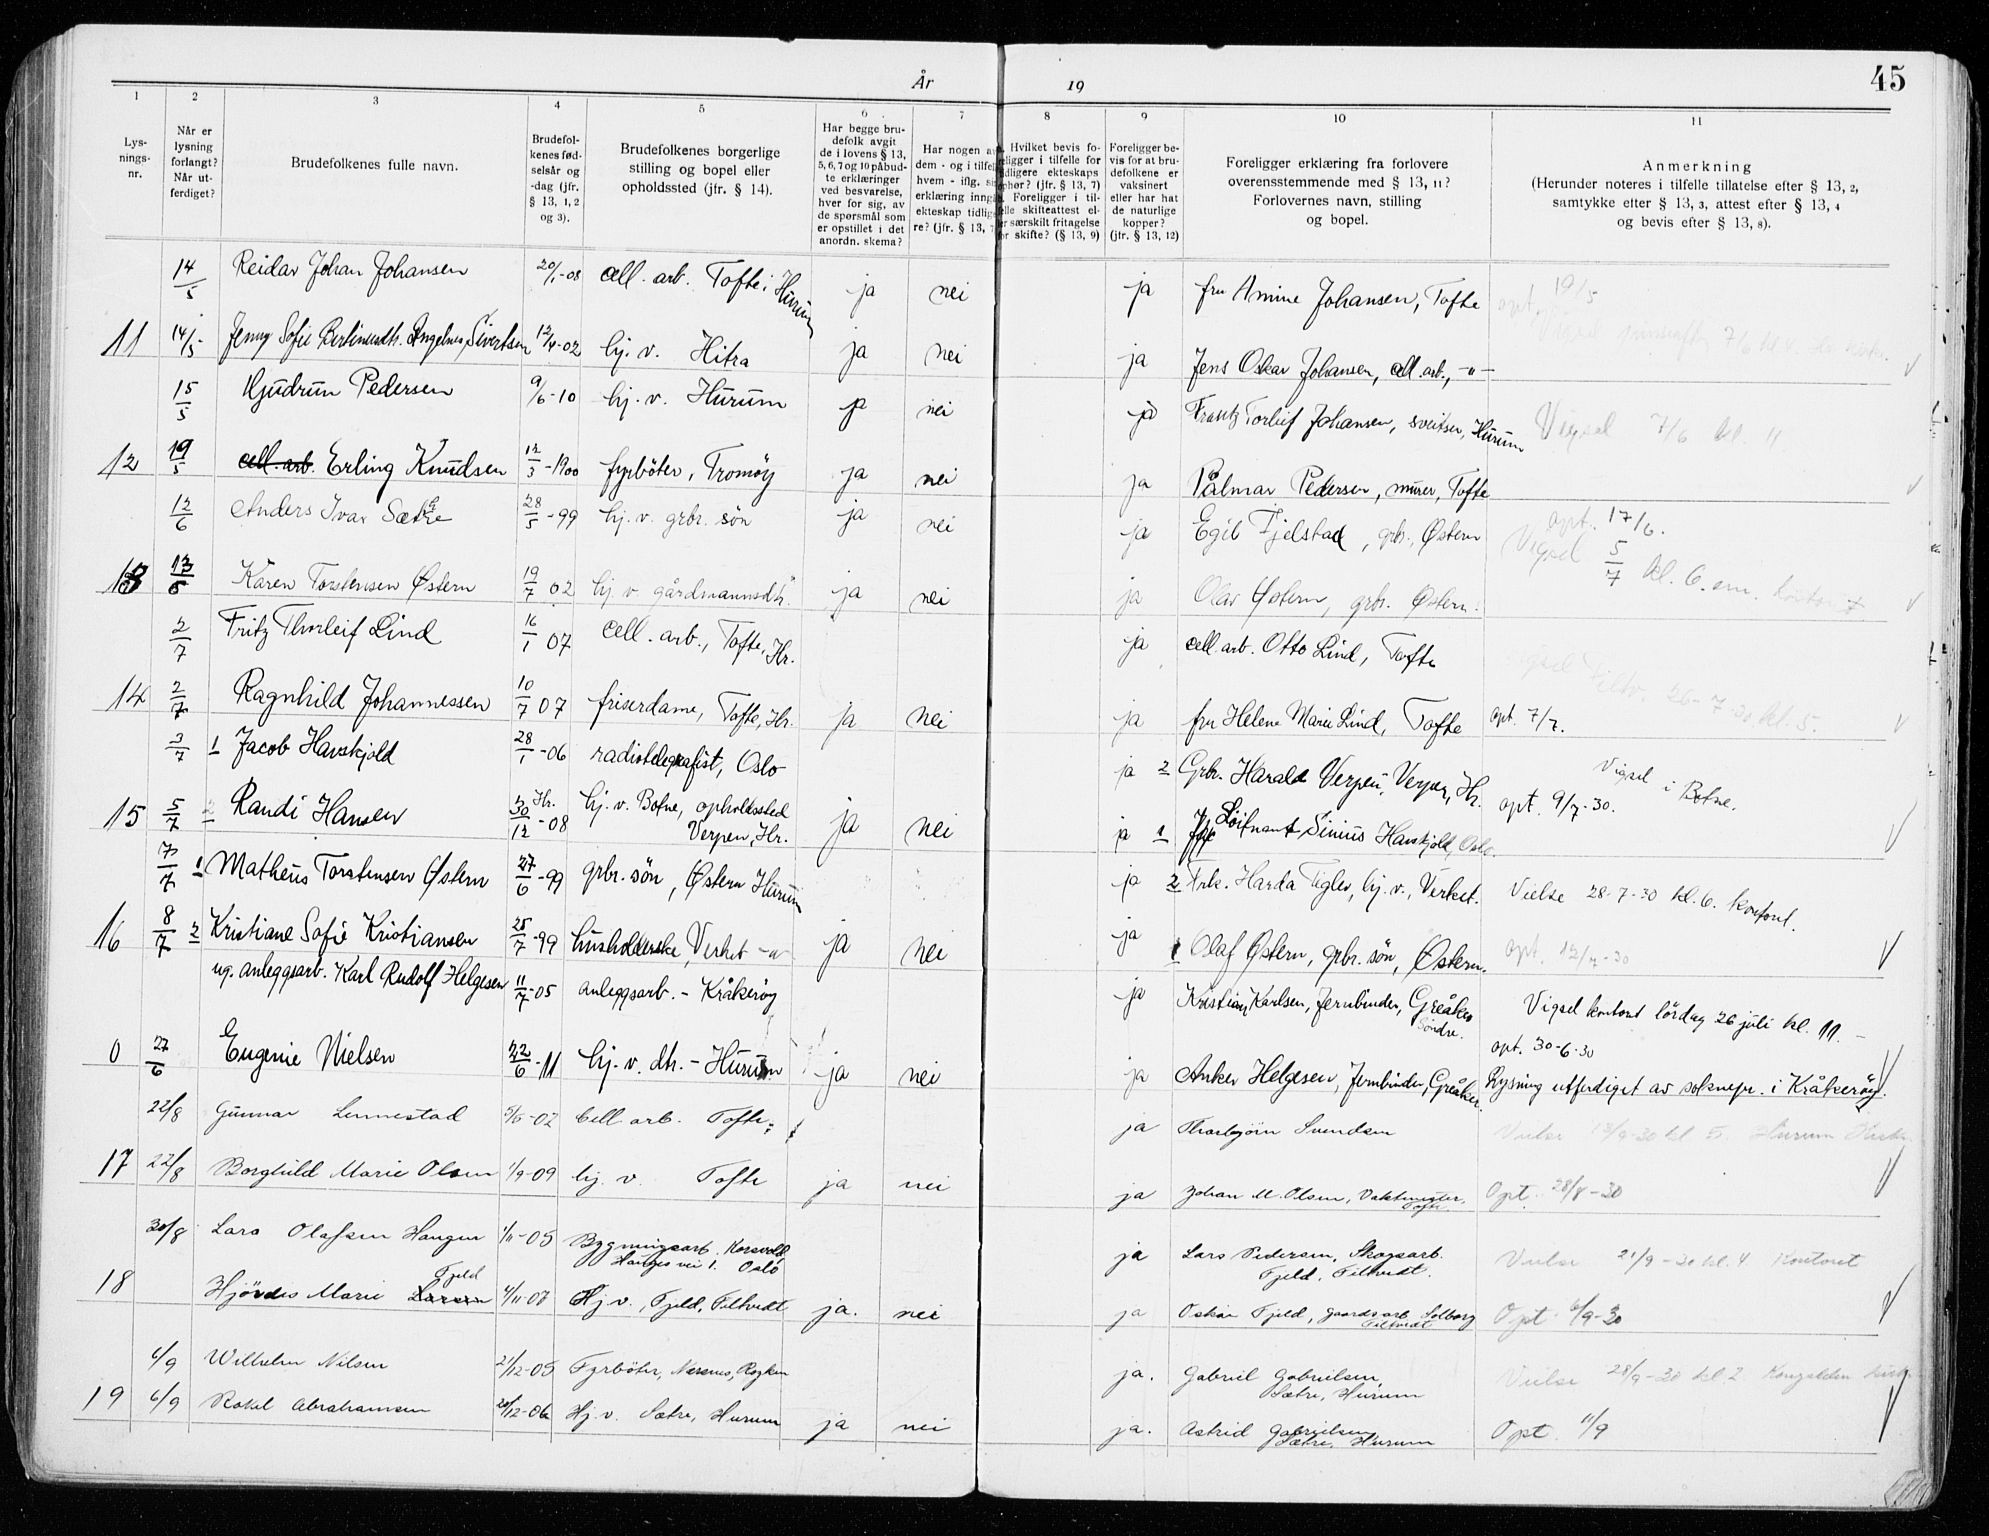 År 19 45
1 2 3 4 5 6 7 8 9 10 11
Lys-
nings-
nr.
Når er
lysning
forlangt?
Når ut-
ferdiget?
Brudefolkenes fulle navn.
Brudefol-
kenes fød-
selsår og
-dag (jfr.
§ 13, 1, 2
og 3).
Brudefolkenes borgerlige
stilling og bopel eller
opholdssted (jfr. § 14).
Har begge bru-
defolk avgit
de i lovens § 13,
5, 6, 7 og 10 påbud-
te erklæringer
ved besvarelse,
hver for sig, av
de spørsmål som
er opstillet i det
anordn. skema?
Har nogen a
dem - og i tilfel
hvem - iflg. si
erklæring inng
ekteskap tidlig
re? (jfr. § 13, 7
Hvilket bevis fo-
religger i tilfelle for
tidligere ekteskaps
ophør? (jfr. § 13, 7)
Foreligger i til-
felle skifteattest el-
er særskilt fritagelse
for skifte? (§ 13, 9)
Foreligger be-
vis for at bru-
defolkene er
vaksinert
eller har hat
de naturlige
kopper?
(jfr. § 13, 12)
Foreligger erklæring fra forlovere
overensstemmende med § 13, 11?
Forlovernes navn, stilling
og bopel.
Anmerkning
(Herunder noteres i tilfelle tillatelse efter § 13, 2,
samtykke efter § 13, 3, attest efter § 13, 4
og bevis efter § 13, 8).
14/5 Reidar Johan Johansen 20/1-08 cell. arb. Tofte i Hurum ja nei ja fru Amine Johansen, Tofte opt. 19/5
11 14/5 Jenny Sofie Bertineusdtr. Angelnes, Sivertsen 12/4-02 hj. v. Hitra ja nei ja Jens Oskar Johansen, cell. arb., -"- 7/6
15/5 Gudrun Pedersen 9/6-10 hj. v. Hurum ja nei ja Frantz Torleif Johansen, sveitser, Hurum Vigsel 7/6 kl. 11
12 19/5 cell. arb. Erling Knudsen 12/3-1900 fyrböter, Tromöy ja nei ja Pålmar Pedersen, murer, Tofte
12/6 Anders Ivar Sætre 28/5-99 hj. v. grbr. sön ja nei ja Egil Fjelstad, grbr., Østern opt. 17/6.
13 13/6 Karen Torstensen Østern 19/7 02 hj. v. gårdmannsdtr. ja nei ja Olav Østern, grbr. Østern. Vigsel 5/7 kl. 6. em. kontoret
2/7 Fritz Thorleif Lind 16/1 07 cell. arb., Tofte, Hr. ja cell. arb. Otto Lind, Tofte
14 2/7 Ragnhild Johannessen 10/7 07 friserdame, Tofte, Hr. ja nei ja fru Helene Marie Lind, Tofte opt. 7/7. 26-7-30 kl. 5.
3/7 1 Jacob Havskjold 28/1-06 radiotelegrafist, Oslo ja 2 Grbr. Harald Verpen, Verpen, Hr. Vigsel i Botne.
15 5/7 2 Randi Hansen 30/12-08 Hr. hj. v. Botne, opholdssted
Verpen, Hr. ja nei ja 1 Loitnant Sinius Havskjold, Oslo. opt. 9/7-30.
7/7 1 Matheus Torstensen Østern 27/6-99 grbr. sön, Østern Hurum ja 2 Frk. Harda Tigler, hj. v., Verket. Vielse 28-7-30 kl. 6. kontoret.
16 8/7 2 Kristiane Sofie Kristiansen 25/7-99 husholderske, Verket -"- ja nei ja 1 Olaf Østern, grbr. sön, Østern. opt. 12/7-30
ug. anleggsarb. Karl Rudolf Helgesen 11/7-05 anleggsarb. - Kråkeröy ja Kristian Karlsen, Jernbinder, Greåker
Söndre. Vigsel kontoret lördag 26 juli kl. 11. -
opt. 30-6-30
0 27/6 Eugenie Nielsen 22/6-11 hj. v. dtr. - Hurum ja nei ja Anker Helgesen, Jernbinder, Greåker. Lysning utferdiget av soknepr. i Kråkeröy.
22/8 Gunnar Lennestad 5/5-02 Cell. arb. Tofte ja Thorbjörn Svendsen Vielse 13/9-30 kl 5. Hurum Kirke
17 22/8 Borghild Marie Olsen 1/9-09 hj. v. Tofte ja nei ja Johan M. Olsen, Vaktmester,
Tofte Opt. 28/8-30
30/8 Lars Olafsen Haugen 1/11-05 Bygningsarb. Korsvold,
Hauges vei 1. Oslo ja Lars Pedersen, Skogsarb.
Fjeld, Filtvedt. Vielse 21/9-30 kl. 4 Kontoret
18 Hjördis Marie Larsen Fjeld 4/11-07 Hj. v., Fjeld, Filtvedt ja. nei ja Oskar Fjeld, gaardsarb. Solborg
Filtvedt Opt. 6/9-30
6/9 Wilhelm Nilsen 21/12-05 Fyrböter, Nærsnes, Røyken ja. Gabriel Gabrielsen,
Sætre, Hurum Vielse 28/9-30 kl. 2 Kongsdelen kirke
19 6/9 Rakel Abrahamsen 20/12-06 Hj. v. Sætre, Hurum ja nei ja. Astrid Gabrielsen
Sætre, Hurum Opt. 11/9